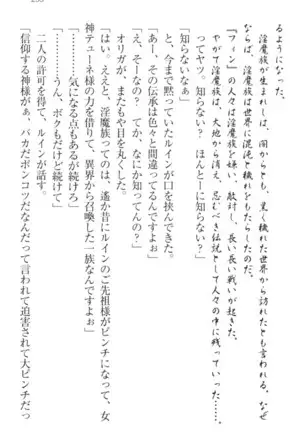 るようになった。
淫魔族が生まれしは、闇からとも、黒く穢れた世界から訪れたとも言われる。なぜ
ならば、淫魔族は世界に混沌と穢れをもたらしたのだ。
『フィン』の人々は淫魔族を嫌い、敵対し、長い長い戦いが起きた。
淫魔族は、大地から消え、忌むべき伝説として人々の中に残っていった……。
ってヤツ。知らない？　ほんとーに知らない？」
「知らないなぁ」
と、今まで黙っていたルインが口を挟んできた。
「あー、その伝承は色々と間違ってるんですよぉ」
「え、そーなの？　てか、なにか知ってんの？」
オリガが、またもや目を丸くした。
「はい。ええと、淫魔族ってのは、遙か昔にルインのご先祖様がピンチになって、女
神テューネ様の力を借りて、異界から召喚した一族なんですよぉ」
「……気になる点もあるが続けろ」
「……うん、ボクもだけど続けて」
二人の許可を得て、ルインが話す。
「信仰する神様がぁ、バカだポンコツだなんだって言われて迫害されて大ピンチだっ